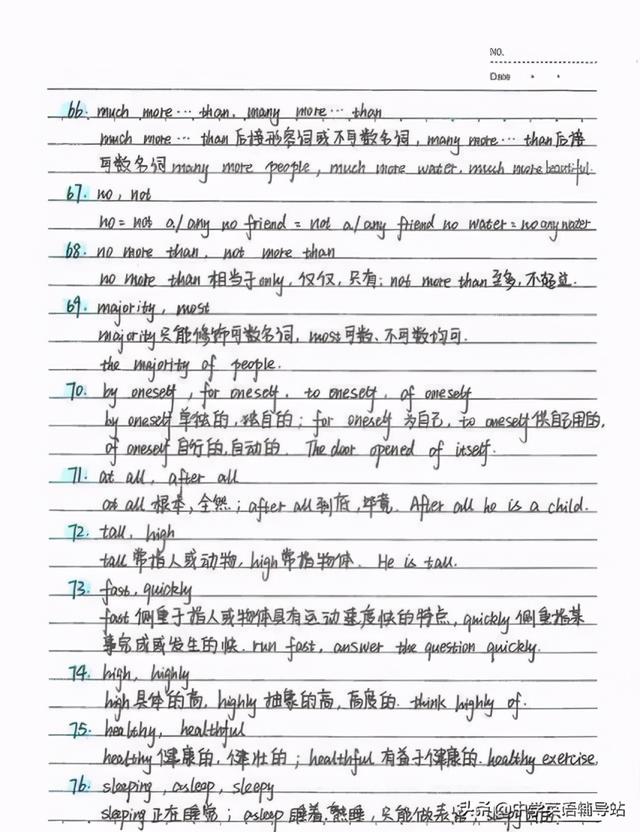 NO.
Date
66. much more… than, many more… than
much more… than后接形容词或不可数名词, many more… than后接
可数名词 many more people, much more water, much more beautiful.
67. no, not
no = not a/any no friend = not a/any friend no water = no any water
68. no more than, not more than
no more than 相当于only, 仅仅, 只有; not more than 至多, 不超过.
69. majority, most
majority只能修饰可数名词, most可数、不可数均可.
the majority of people.
70. by oneself, for oneself, to oneself, of oneself
by oneself 单独的, 独自的; for oneself 为自己, to oneself 供自己用的,
of oneself 自行的, 自动的. The door opened of itself.
71. at all, after all
at all 根本, 全然; after all 到底, 毕竟. After all he is a child.
72. tall, high
tall 常指人或动物, high 常指物体. He is tall.
73. fast, quickly
fast 侧重于指人或物体具有运动速度快的特点, quickly 侧重指某
事完成或发生的快. run fast, answer the question quickly.
74. high, highly
high 具体的高, highly 抽象的高, 高度的. think highly of.
75. healthy, healthful
healthy 健康的, 健壮的; healthful 有益于健康的. healthy exercise.
76. sleeping, asleep, sleepy
sleeping 正在睡觉; asleep 睡着, 熟睡, 只能做表语; sleepy
头条 @中学英语辅导站